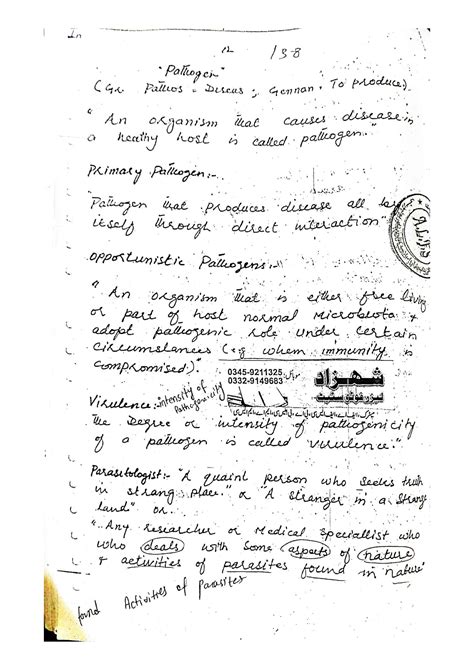 In
12
13-8
"Pathogen"
(Gr. Pathos = Diseas; Gennan = To produce)
"An organism that causes disease in
a healthy host is called pathogen."
Primary Pathogen:-
"Pathogen that produces disease all by
itself through direct interaction"
Opportunistic Pathogens:-
"An organism that is either free living
or part of host normal Microbiota &
adopt pathogenic role under certain
circumstances (e.g when immunity is
compromised).
0345-9211325
0332-9149683
شہزاد
Virulence:- intensity of
Pathogenicity
The Degree or intensity of pathogenicity
of a pathogen is called virulence."
Parasitologist:- "A quaint person who seeks truth
in strang place." or "A stranger in a strange
land" or.
"Any researcher or Medical speciallist who
who deals with some aspects of nature
& activities of parasites found in nature"
found Activities of Parasites